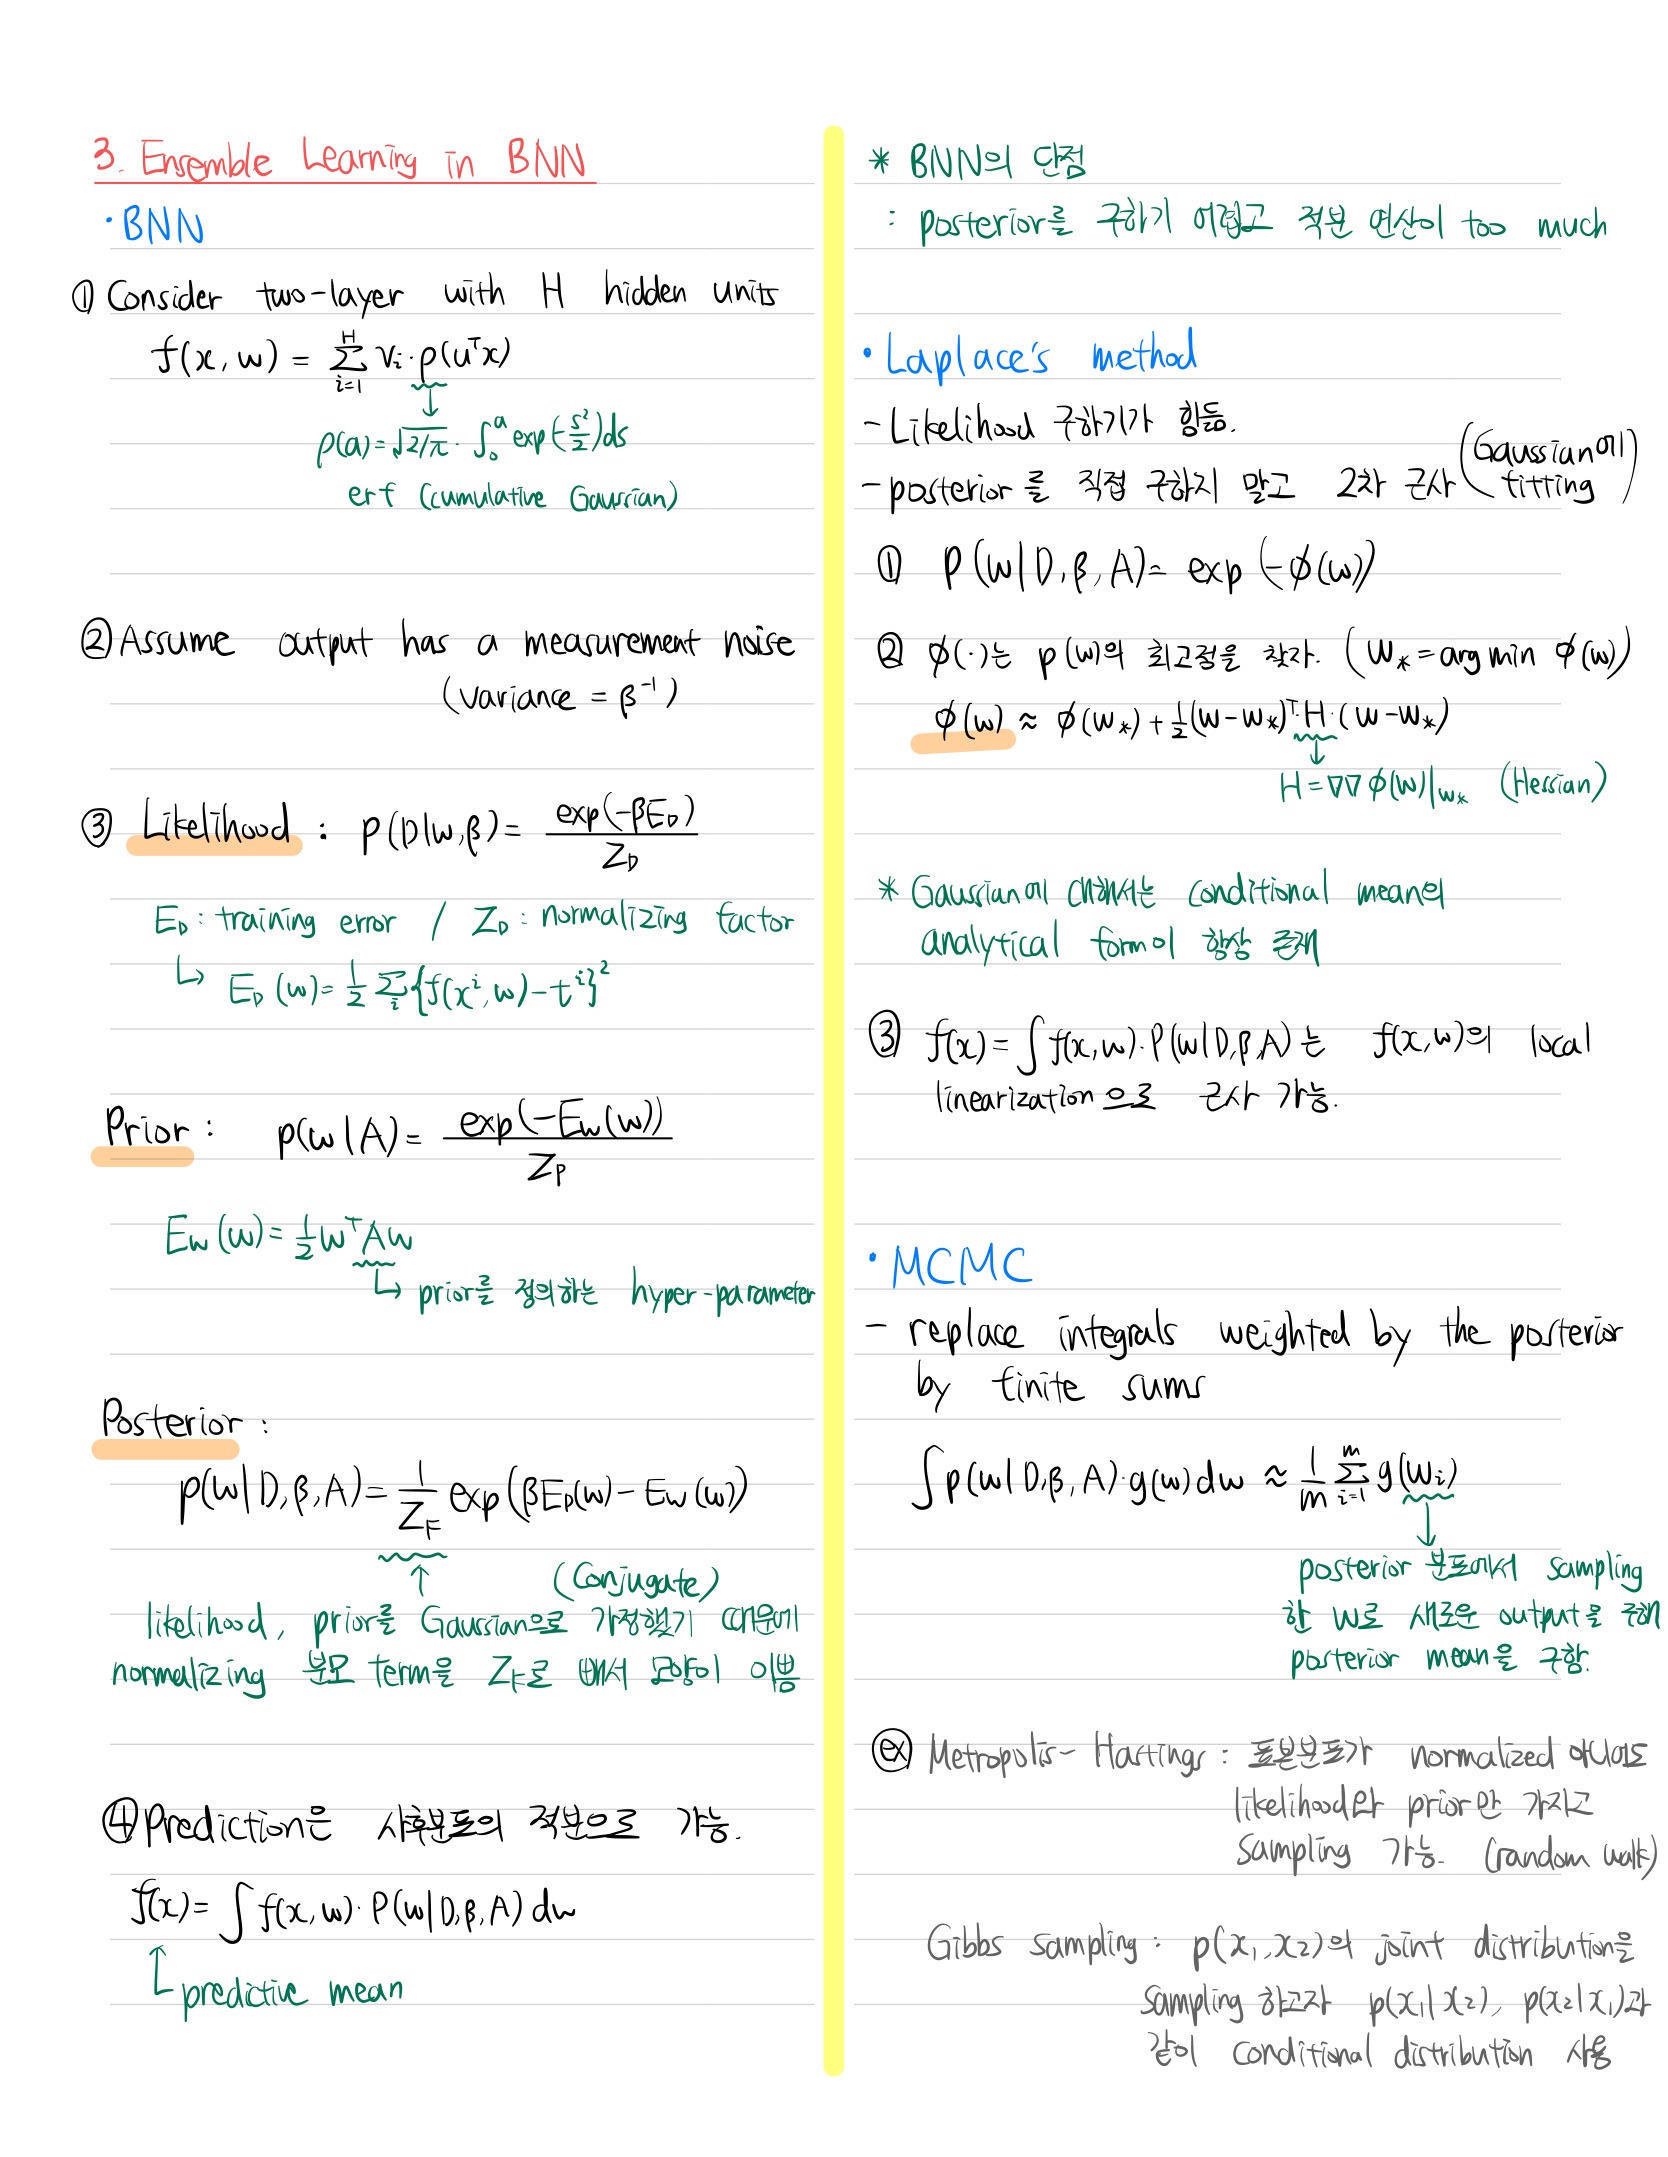 3. Ensemble Learning in BNN
· BNN
① Consider two-layer with H hidden units
f(x, w) = Σ_{i=1}^{H} v_i · ρ(uᵀx)
ρ(a) = √2/π · ∫₀ᵃ exp(-s²/2)ds
erf (cumulative Gaussian)
② Assume output has a measurement noise
(variance = β⁻¹)
③ Likelihood : p(D|w,β) = exp(-βE_D) / Z_D
E_D : training error / Z_D : normalizing factor
↳ E_D(w) = 1/2 Σ_i {f(xⁱ, w) - tⁱ}²
Prior : p(w|A) = exp(-E_w(w)) / Z_P
E_w(w) = 1/2 wᵀAw
↳ prior를 정의하는 hyper-parameter
Posterior :
p(w|D, β, A) = 1/Z_F exp(βE_D(w) - E_w(w))
(Conjugate)
likelihood, prior를 Gaussian으로 가정했기 때문에
normalizing 분모 term을 Z_F로 빼서 모양이 이쁨
④ Prediction은 사후분포의 적분으로 가능.
f(x) = ∫ f(x, w) · P(w|D, β, A) dw
predictive mean
* BNN의 단점
: posterior를 구하기 어렵고 적분 연산이 too much
· Laplace's method
- Likelihood 구하기가 힘듦.
- posterior를 직접 구하지 말고 2차 근사 (Gaussian에 fitting)
① P(w|D, β, A) = exp(-φ(w))
② φ(·)는 p(w)의 최고점을 찾자. (w* = arg min φ(w))
φ(w) ≈ φ(w*) + 1/2(w-w*)ᵀ·H·(w-w*)
H = ∇∇φ(w)|w* (Hessian)
* Gaussian에 대해서는 conditional mean의
analytical form이 항상 존재
③ f(x) = ∫ f(x, w)·P(w|D, β, A)는 f(x, w)의 local
linearization으로 근사 가능.
· MCMC
- replace integrals weighted by the posterior
by finite sums
∫ p(w|D, β, A)·g(w) dw ≈ 1/m Σ_{i=1}^{m} g(w_i)
posterior 분포에서 sampling
한 w로 새로운 output을 구해
posterior mean을 구함.
ex Metropolis-Hastings : 표본분포가 normalized 아니어도
likelihood와 prior만 가지고
sampling 가능. (random walk)
Gibbs sampling : p(x₁, x₂)의 joint distribution을
sampling 하고자 p(x₁|x₂), p(x₂|x₁)과
같이 conditional distribution 사용